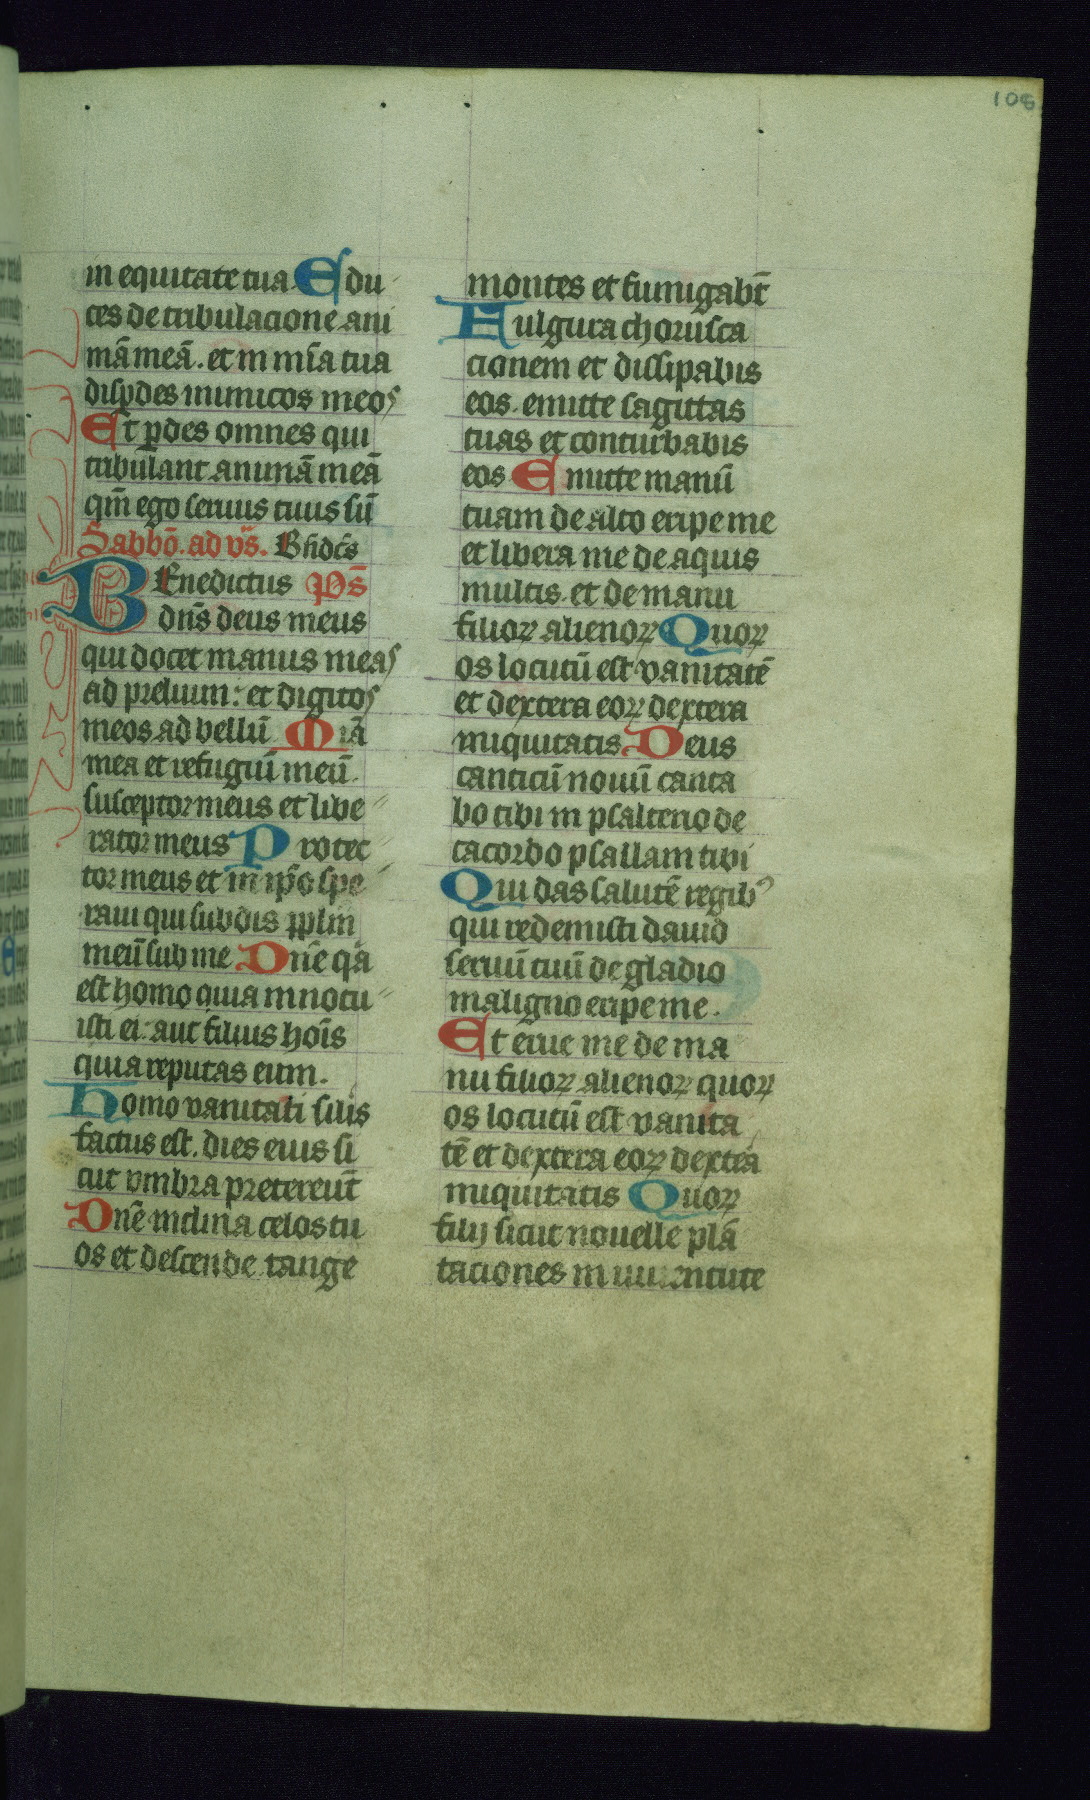 108
in equitate tua. Edu
ces de tribulacione ani
mā meā. et in mīa tua
disꝑdes inimicos meos
Et ꝑdes omnes qui
tribulant animā meā
qm̄ ego seruus tuus sū
Sabbō. ad vs̄. Bn̄dc̄s
BEnedictus Ps̄
dn̄s deus meus
qui docet manus meas
ad prelium: et digitos
meos ad bellū Mīā
mea et refugiū meū.
susceptor meus et libe
rator meus Protec
tor meus et in ip̄o spe
raui qui subdis ppl̄m
meū sub me Dn̄e qͥa
est homo quia innotu
isti ei: aut filius hoīs
quia reputas eum.
homo vanitati silis
factus est. dies eius si
cut vmbra pretereūt
Dn̄e inclina celos tu
os et descende tange
montes et fumigabt̄
Fulgura chorusca
cionem et dissipabis
eos. emitte sagittas
tuas et conturbabis
eos Emitte manū
tuam de alto eripe me
et libera me de aquis
multis. et de manu
filioꝝ alienoꝝ Quoꝝ
os locutū est vanitatē
et dextera eoꝝ dextera
iniquitatis Deus
canticū nouū canta
bo tibi in psalterio de
cacordo psallam tibi
Qui das salutē regibꝰ
qui redemisti dauid
seruū tuū de gladio
maligno eripe me.
Et erue me de ma
nu filioꝝ alienoꝝ quoꝝ
os locutū est vanita
tē et dextera eoꝝ dextea
iniquitatis Quoꝝ
filij sicut nouelle plā
taciones in iuuentute